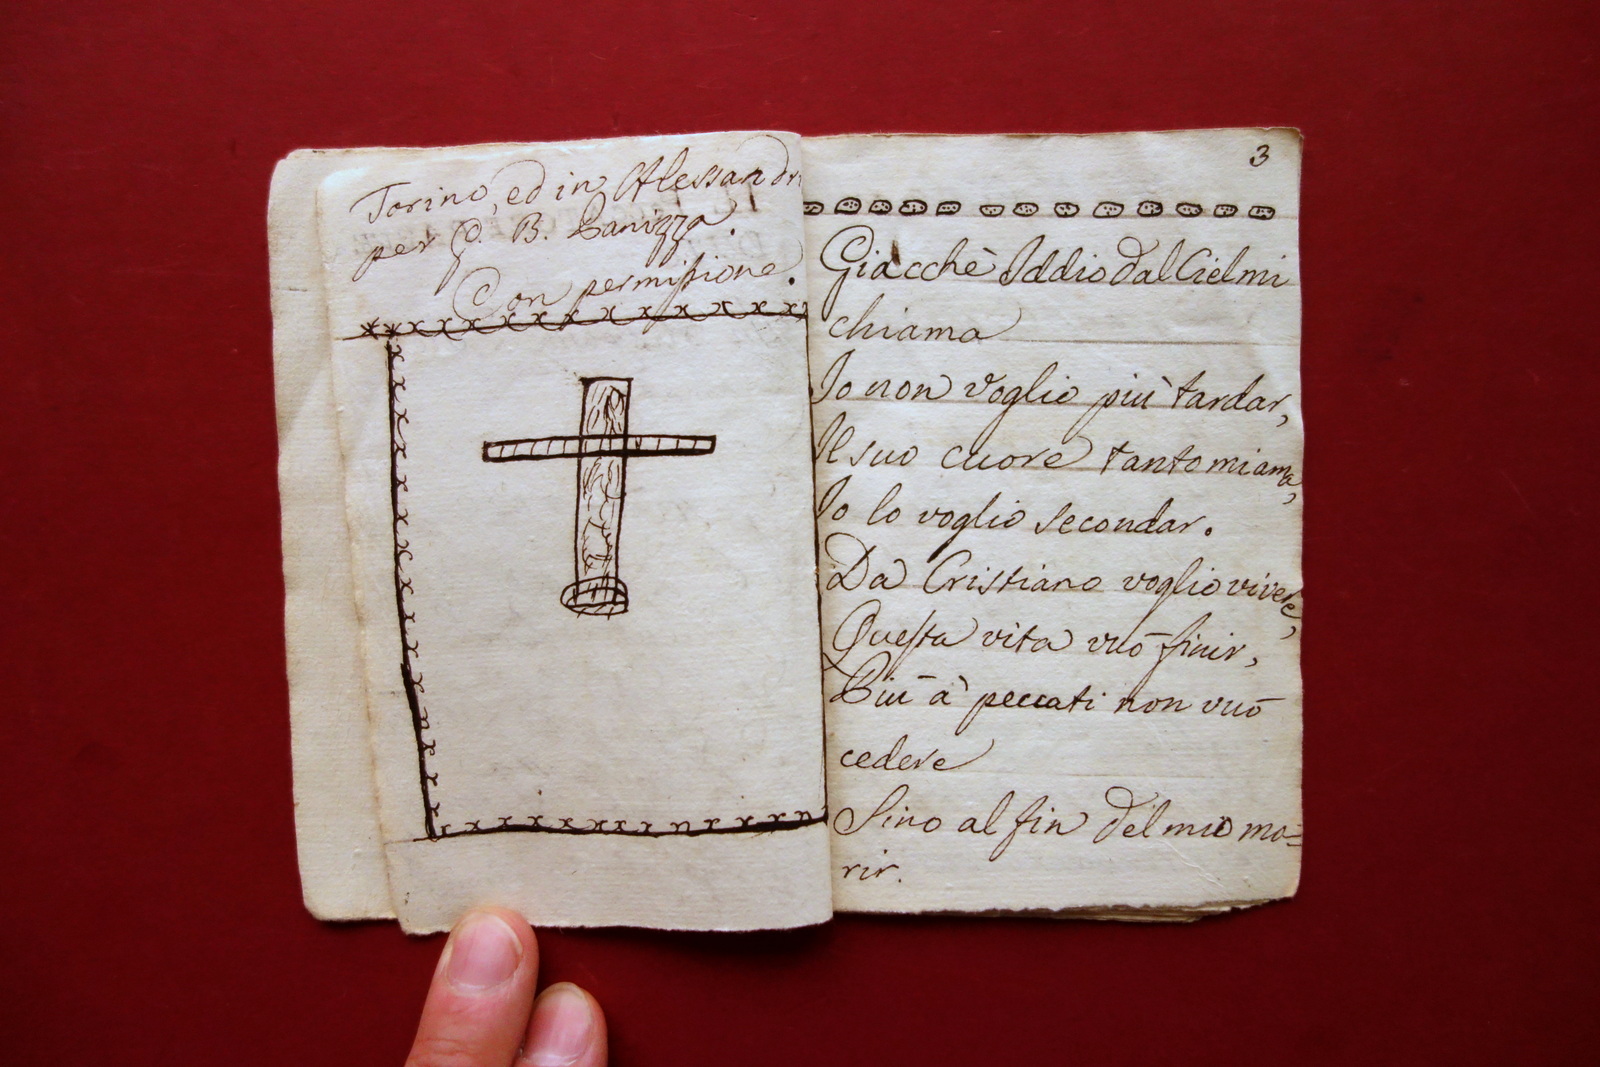 Torino, ed in Alessandri
per G. B. Panizza.
Con permissione.
3
Giacchè Iddio dal Ciel mi
chiama
Io non voglio più tardar,
Il suo cuore tanto mi ama,
Io lo voglio secondar.
Da Cristiano voglio vivere,
Questa vita vuò finir,
Più à peccati non vuò
cedere
Sino al fin del mio mo=
rir.